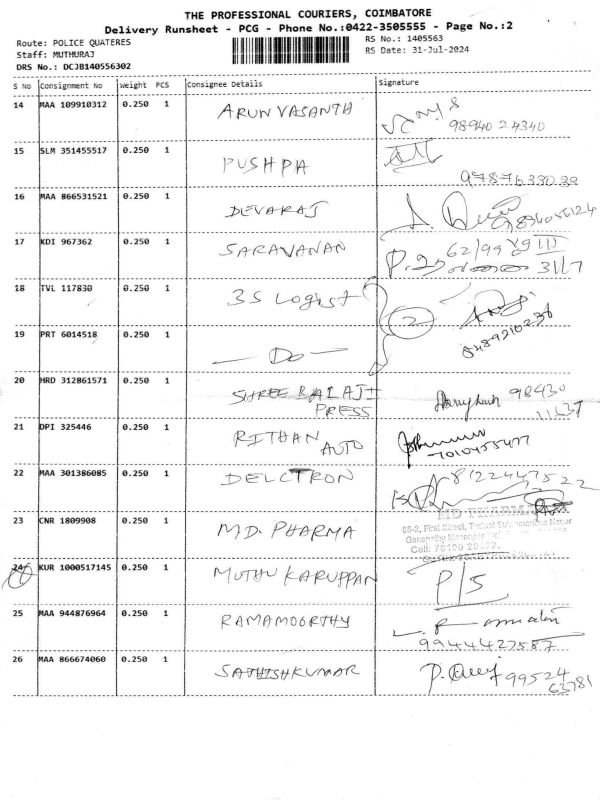 THE PROFESSIONAL COURIERS, COIMBATORE
Delivery Runsheet - PCG - Phone No.:0422-3505555 - Page No.:2
Route: POLICE QUATERES
RS No.: 1405563
Staff: MUTHURAJ
RS Date: 31-Jul-2024
DRS No.: DCJB140556302
S No Consignment No Weight PCS Consignee Details Signature
14 MAA 109910312 0.250 1 ARUN VASANTH
98940 24340
15 SLM 351455517 0.250 1 PUSHPA
9787633030
16 MAA 866531521 0.250 1 DEVARAJ
17 KDI 967362 0.250 1 SARAVANAN
62/99
31/7
18 TVL 117830 0.250 1 3S Logist
2
8489210236
19 PRT 6014518 0.250 1 — Do —
20 HRD 312861571 0.250 1 SHREE BALAJI
PRESS
98430
11637
21 DPI 325446 0.250 1 RITHAN
AUTO
7010455477
22 MAA 301386085 0.250 1 DELCTRON
8122447522
23 CNR 1809908 0.250 1 M.D. PHARMA
MD PHARMA
24 KUR 1000517145 0.250 1 MUTHU KARUPPAN P/S
25 MAA 944876964 0.250 1 RAMAMOORTHY
9944427587
26 MAA 866674060 0.250 1 SATHISHKUMAR
99524
63781